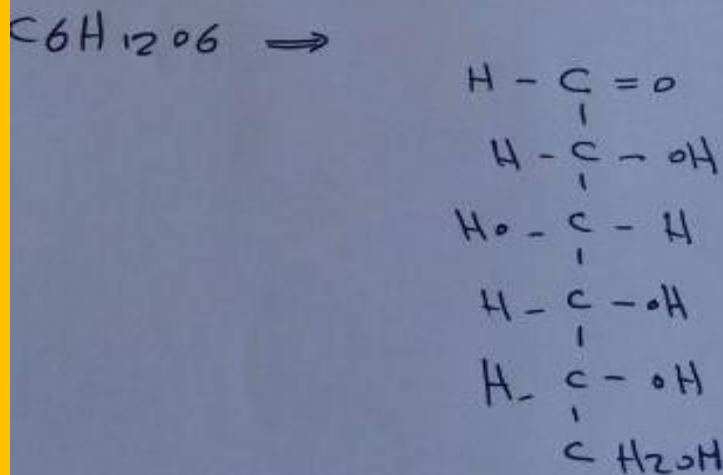 C6H12O6 ⇒
H - C = O
H - C - OH
HO - C - H
H - C - OH
H - C - OH
CH2OH